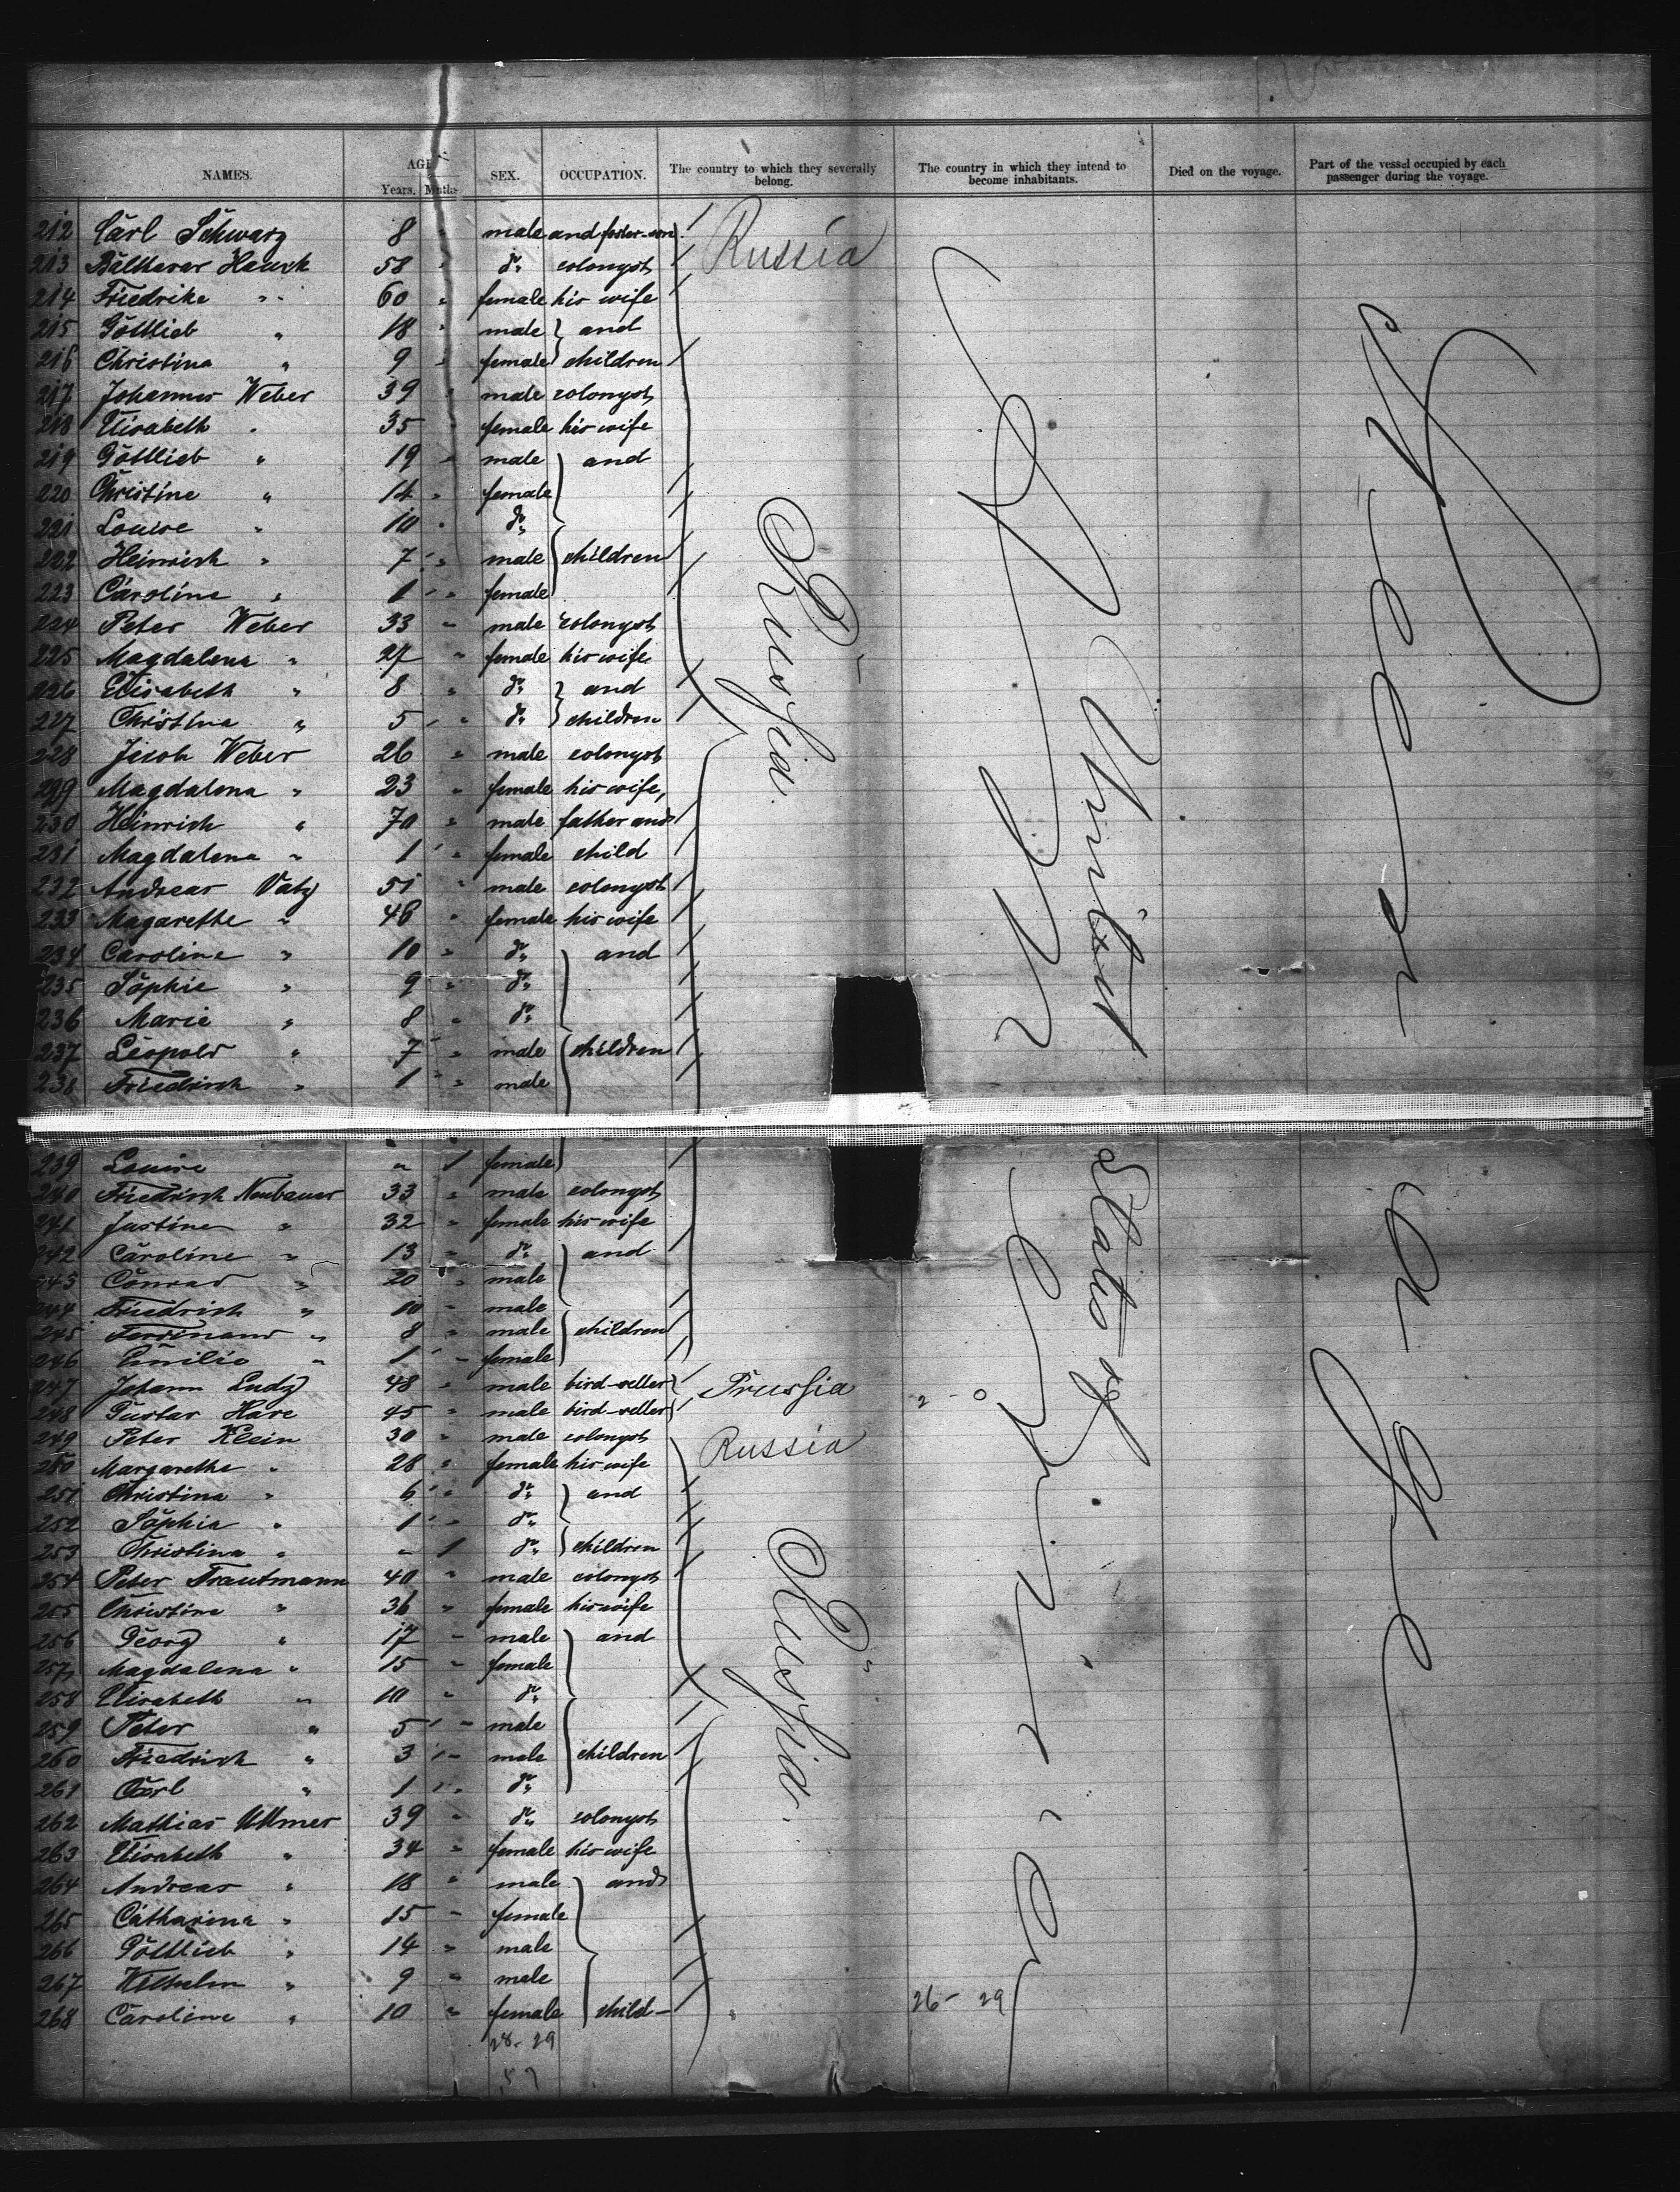 NAMES. AGE Years. Mnths SEX. OCCUPATION. The country to which they severally belong. The country in which they intend to become inhabitants. Died on the voyage. Part of the vessel occupied by each passenger during the voyage.
212 Carl Schwarz 8 " male and foster-son Russia
213 Balthasar Hauck 58 " do colonyst
214 Friedrike " 60 " female his wife
215 Gottlieb " 18 " male and
216 Christina " 9 " female children
217 Johannes Weber 39 " male colonyst
218 Elisabeth " 35 " female his wife
219 Gottlieb " 19 " male and
220 Christine " 14 " female
221 Louise " 10 " do
222 Heinrich " 7 " male children
223 Caroline " 1 " female
224 Peter Weber 33 " male colonyst
225 Magdalena " 27 " female his wife
226 Elisabeth " 8 " do and
227 Christina " 5 " do children
228 Jacob Weber 26 " male colonyst
229 Magdalena " 23 " female his wife,
230 Heinrich " 70 " male father and
231 Magdalena " 1 " female child
232 Andreas Vatz 51 " male colonyst
233 Magarethe " 46 " female his wife
234 Caroline " 10 " do and
235 Sophie " 9 " do
236 Marie " 8 " do
237 Leopold " 7 " male children
238 Friedrich " 1 " male
Russia.
United
239 Louise " 1 female
240 Friedrich Neubauer 33 " male colonyst
241 Justine " 32 " female his wife
242 Caroline " 13 " do and
243 Conrad " 20 " male
244 Friedrich " 10 " male
245 Ferdinand " 8 " male children
246 Emilie " 1 " female
247 Johann Ludz 48 " male bird-seller Prussia 2 - 0
248 Gustav Hare 45 " male bird-seller
249 Peter Klein 30 " male colonyst Russia
250 Margarethe " 28 " female his wife
251 Christina " 6 " do and
252 Sophia " 1 " do
253 Christina " " 1 do children
254 Peter Trautmann 40 " male colonyst
255 Christine " 36 " female his wife
256 Georg " 17 " male and
257 Magdalena " 15 " female
258 Elisabeth " 10 " do
259 Peter " 5 " male
260 Friedrich " 3 " male children
261 Carl " 1 " do
262 Mathias Ullmer 39 " do colonyst
263 Elisabeth " 34 " female his wife
264 Andreas " 18 " male and
265 Catharina " 15 " female
266 Gottlieb " 14 " male
267 Wilhelm " 9 " male
268 Caroline " 10 " female child- " 26 - 29
States of
America
Russia.
Steerage
28 - 29
57